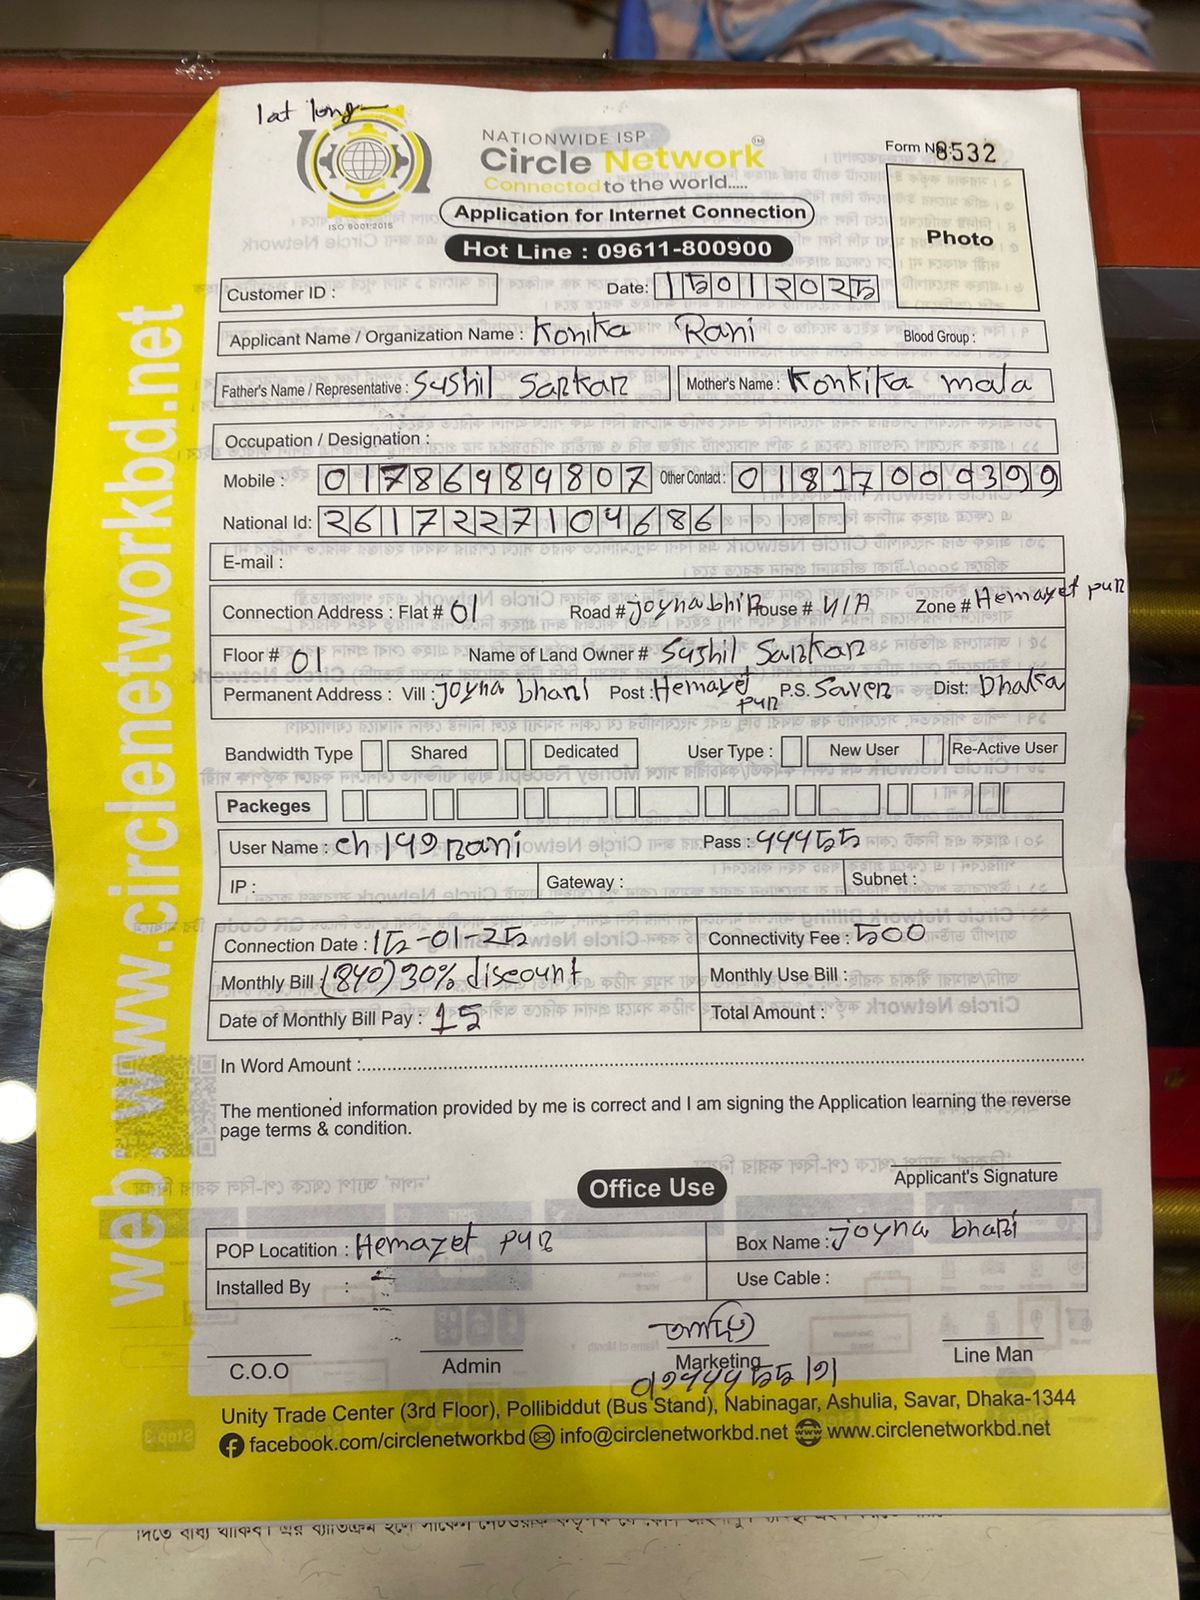 lat long
NATIONWIDE ISP
Circle Network
Connected to the world.....
ISO 9001:2015
Form No 8532
Photo
Application for Internet Connection
Hot Line : 09611-800900
Customer ID :
Date: 15012025
Applicant Name / Organization Name : Konika Rani Blood Group :
Father's Name / Representative : Sushil Sarkar Mother's Name : Konkika mala
Occupation / Designation :
Mobile : Other Contact :
National Id: 2617227104686
E-mail :
Connection Address : Flat # 01 Road # joynabhi House # N/A Zone # Hemayet pur
Floor # 01 Name of Land Owner # Sushil Sarkar
Permanent Address : Vill : Joyna bhari Post : Hemayet pur P.S. Saver Dist: Dhaka
Bandwidth Type Shared Dedicated User Type : New User Re-Active User
Packeges
User Name : ch149rani Pass : 444555
IP : Gateway : Subnet :
Connection Date : 15-01-25 Connectivity Fee : 500
Monthly Bill : (840) 30% discount Monthly Use Bill :
Date of Monthly Bill Pay : 15 Total Amount :
In Word Amount :
The mentioned information provided by me is correct and I am signing the Application learning the reverse
page terms & condition.
Applicant's Signature
Office Use
POP Locatition : Hemayet pur Box Name : Joyna bhari
Installed By : Use Cable :
C.O.O Admin Marketing Line Man
Unity Trade Center (3rd Floor), Pollibiddut (Bus Stand), Nabinagar, Ashulia, Savar, Dhaka-1344
facebook.com/circlenetworkbd info@circlenetworkbd.net www.circlenetworkbd.net
web: www.circlenetworkbd.net